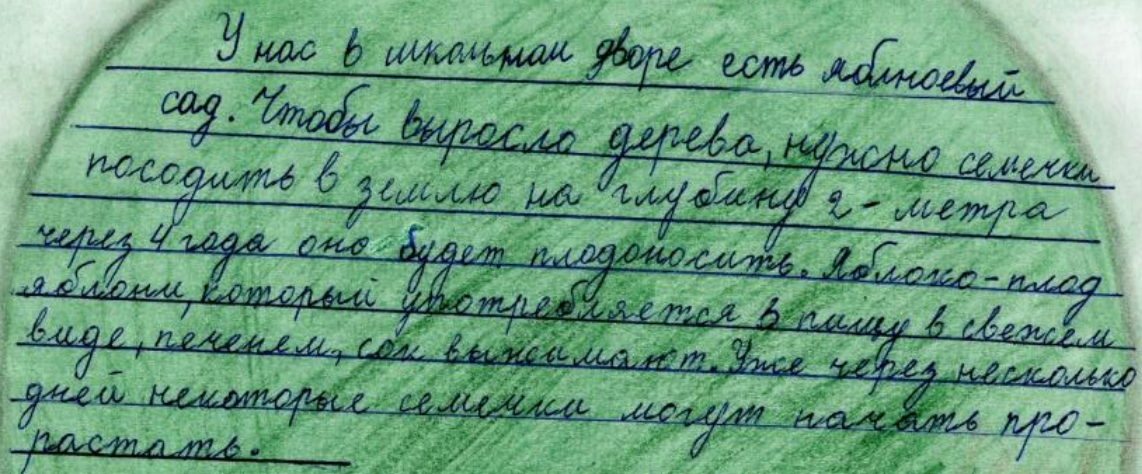 У нас в школьном дворе есть яблноевый
сад. Чтобы выросло дерева, нужно семечки
посодить в землю на глубину 2-метра
через 4 года оно будет плодоносить. Яблоко-плод
яблони, который употребляется в пищу в свежем
виде, печенем, сок выжимают. Уже через несколько
дней некоторые семечки могут начать про-
растать.